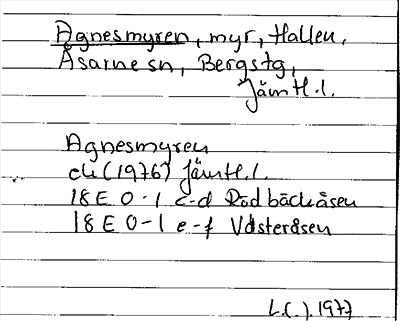 Agnesmyren, myr, Hallen,
Åsarne sn, Bergs tg,
Jämtl.l.
Agnesmyren
ek (1976) Jämtl.l.
18 E 0-1 c-d Rödbäckåsen
18 E 0-1 e-f Västeråsen
L.( ). 1977